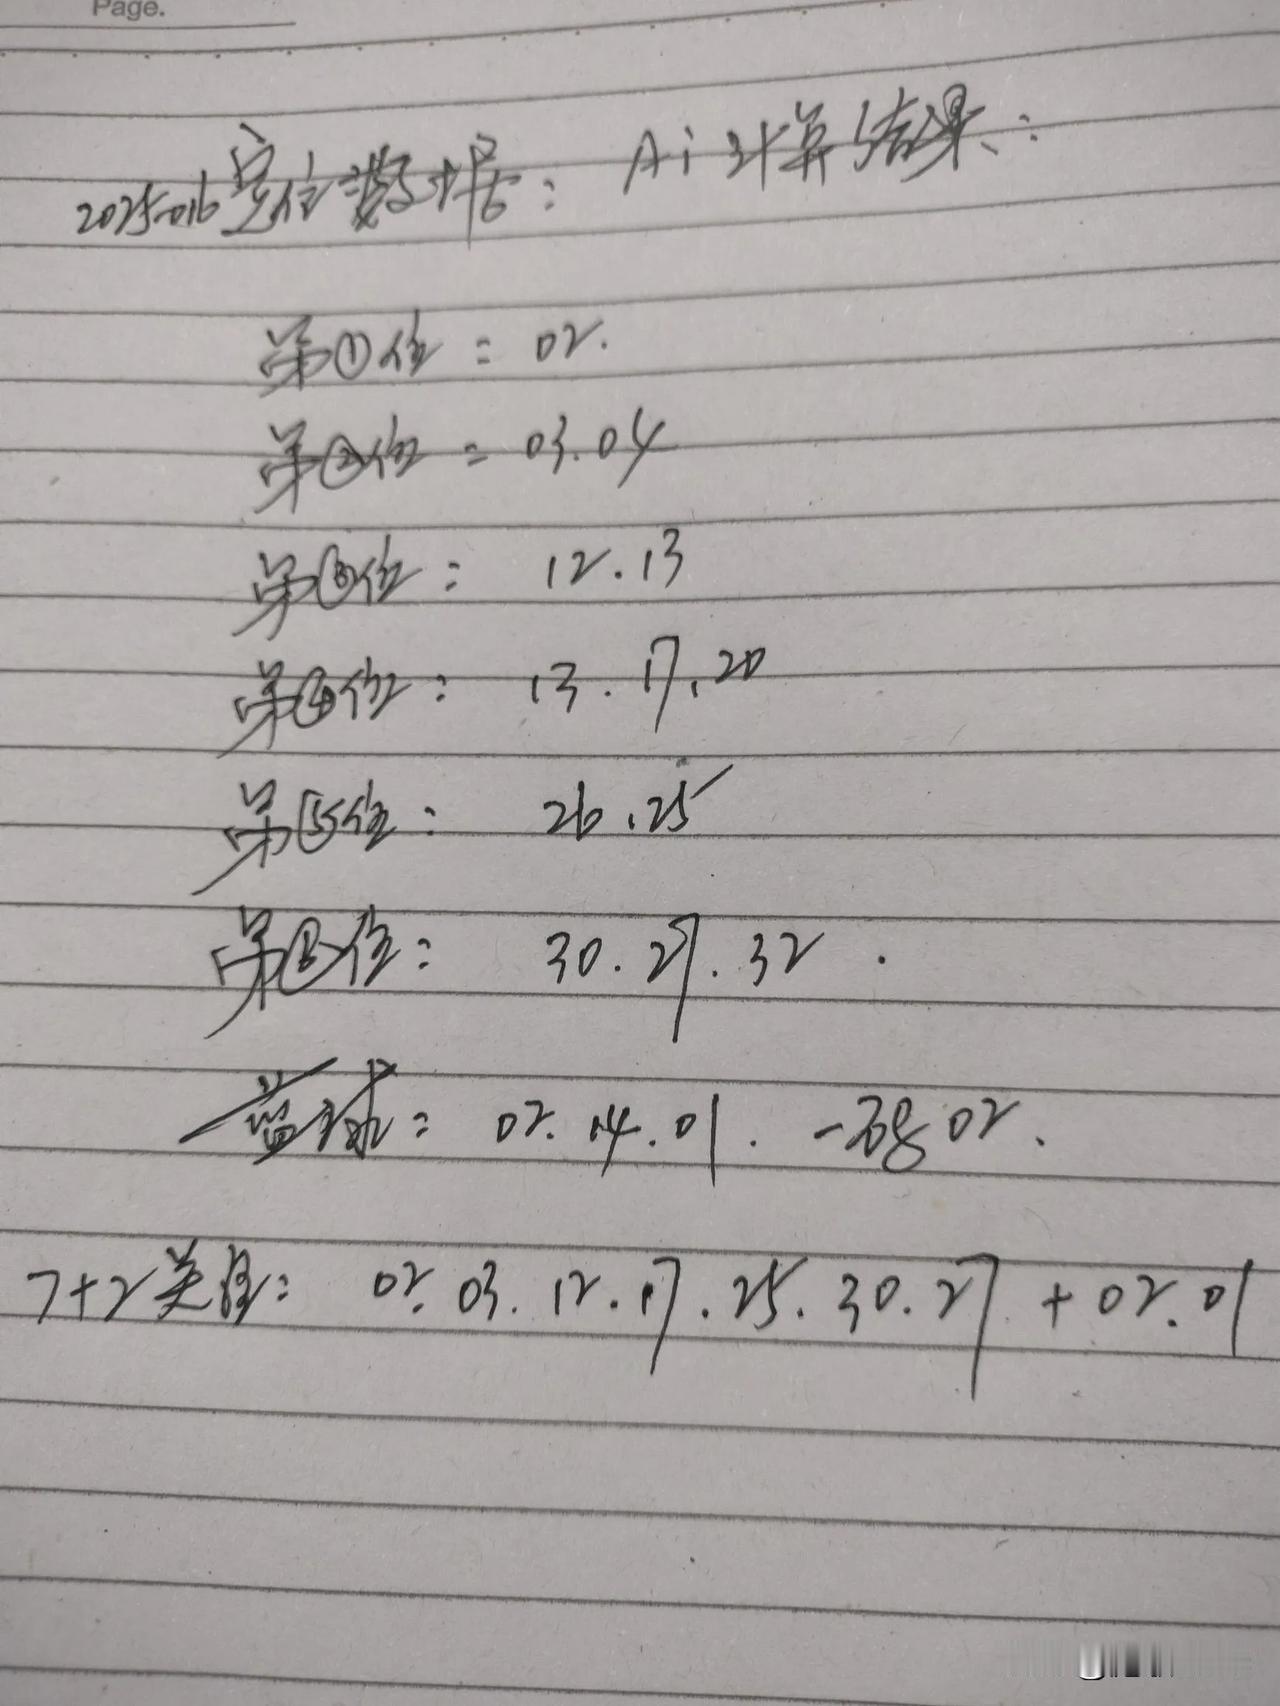 Page.
2025016定位数据: Ai计算结果:
第①位: 02.
第②位: 03.04
第③位: 12.13
第④位: 13.17.20
第⑤位: 26.25
第⑥位: 30.27.32.
蓝球: 02.14.01. 02.
7+2关注: 02.03.12.17.25.30.27+02.01